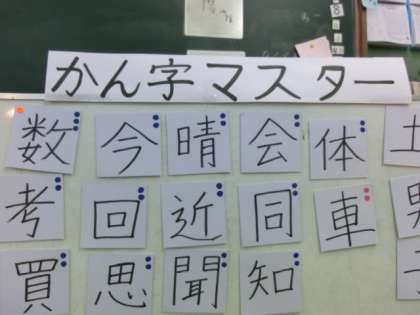 かん字マスター
数 今 晴 会 体
考 回 近 同 車
買 思 聞 知